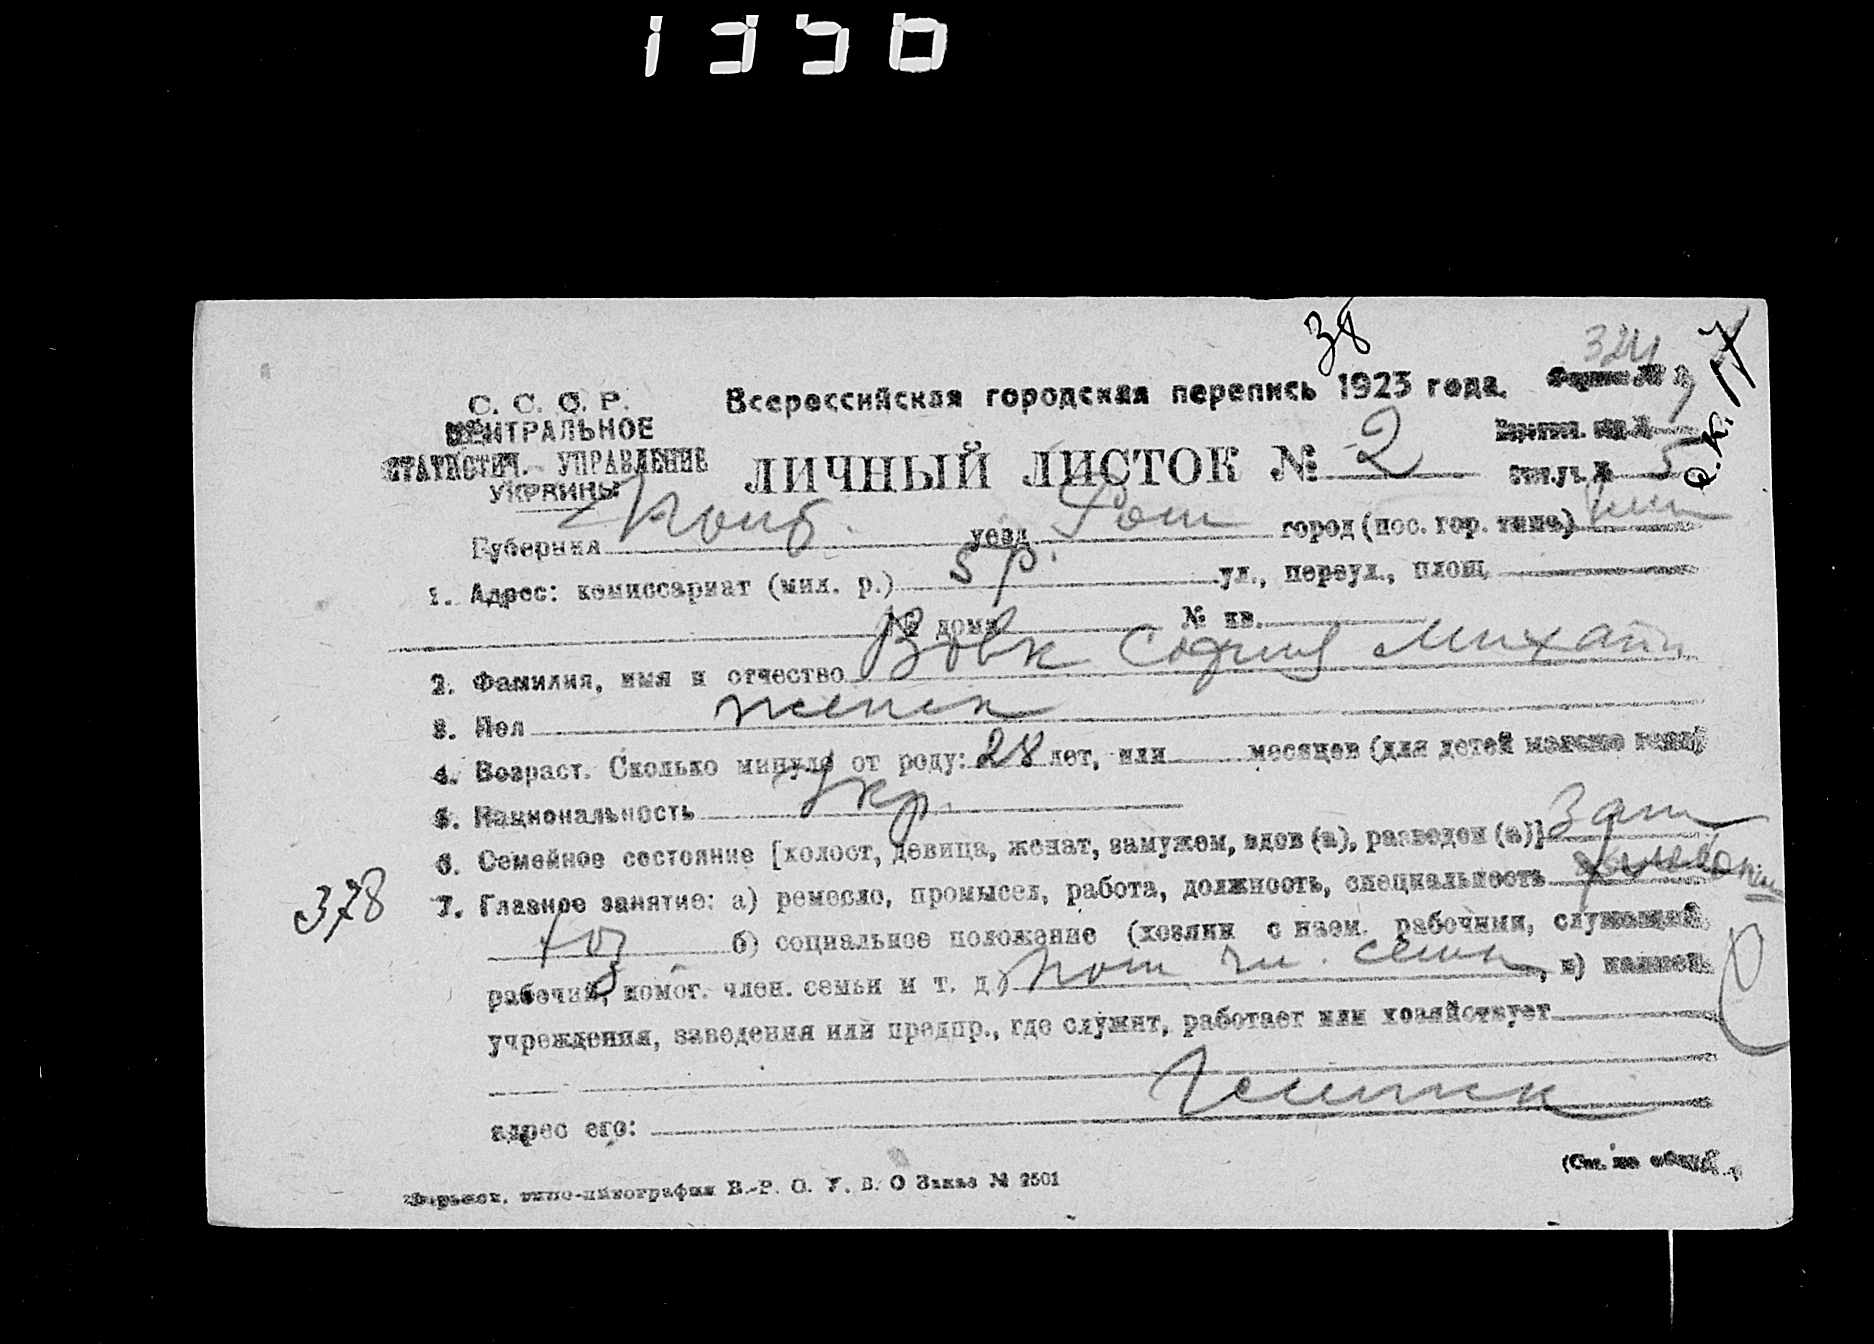 38
324
С. С. С. Р.
ЦЕНТРАЛЬНОЕ
СТАТИСТИЧ. УПРАВЛЕНИЕ
УКРАИНЫ
Всероссийская городская перепись 1923 года.
17
ЛИЧНЫЙ ЛИСТОК № 2
5
Губерния уезд город (пос. гор. типа)
1. Адрес: комиссариат (мил. р.) 5 р. ул., переул., площ.
№ дома № кв.
2. Фамилия, имя и отчество Вовк София Михайл
3. Пол женск
4. Возраст. Сколько минуло от роду: 28 лет, или месяцев (для детей моложе года)
5. Национальность Укр.
6. Семейное состояние [холост, девица, женат, замужем, вдов (а), разведен (а)] Зам
378
7. Главное занятие: а) ремесло, промысел, работа, должность, специальность
б) социальное положение (хозяин с наем. рабочими, служащий,
рабочий, помог. член. семьи и т. д.) пом чл. семьи, в) наимен.
учреждения, заведения или предпр., где служит, работает или хозяйствует
адрес его:
(См. на обор.)
типо-литография В.-Р. О. У. В. О Заказ № 2501